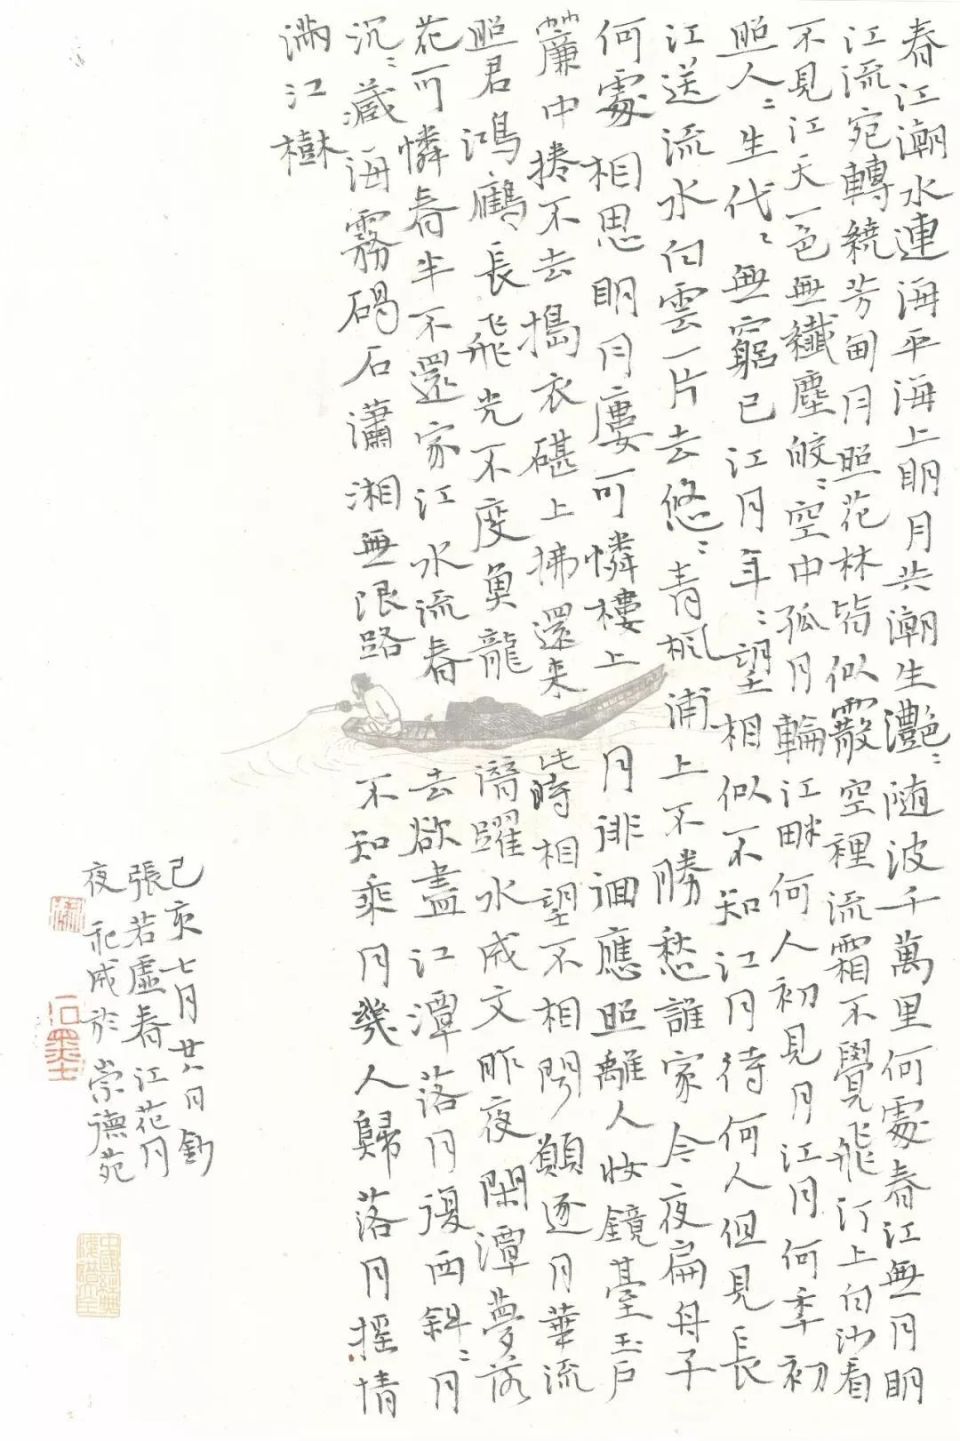 春江潮水連海平海上明月共潮生灔〻随波千萬里何處春江無月明
江流宛轉繞芳甸月照花林皆似霰空裡流霜不覺飛汀上白沙看
不見江天一色無纖塵皎〻空中孤月輪江畔何人初見月江月何季初
照人〻生代〻無窮已江月年〻望相似不知江月待何人但見長
江送流水白雲一片去悠〻青楓浦上不勝愁誰家今夜扁舟子
何處相思明月廔可憐樓上月徘徊應照離人妝鏡臺玉戶
簾中捲不去搗衣碪上拂還来此時相望不相問願逐月華流
照君鴻鴈長飛光不度魚龍潛躍水成文昨夜閑潭夢落
花可憐春半不還家江水流春去欲盡江潭落月復西斜〻月
沉〻藏海霧碣石瀟湘無限路不知乘月幾人歸落月摇情
滿江樹
己亥七月廿八日鈔
張若虛春江花月
夜 成於崇德苑